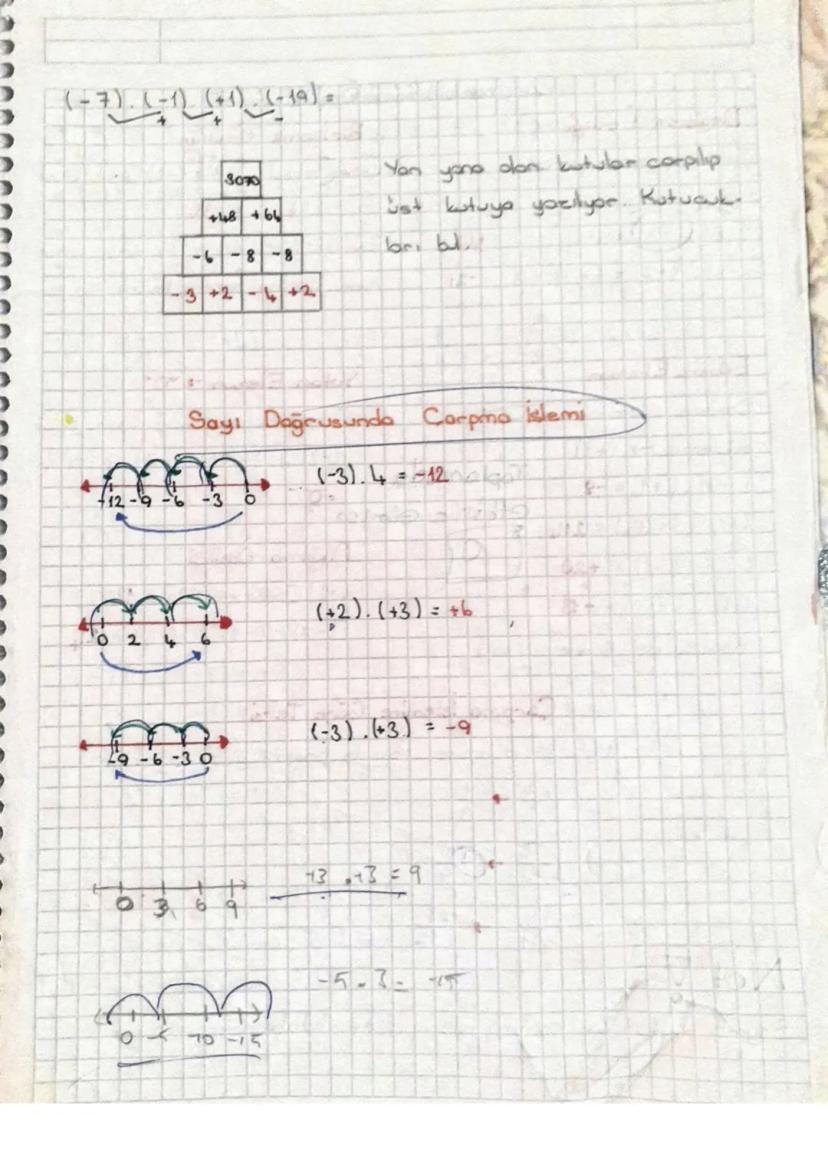 (-7).(-1).(+1).(-19)=
+ + -
3070
+48 +64
-6 -8 -8
-3 +2 -4 +2
Yan yana olan kutular çarpılıp
üst kutuya yazılıyor. Kutucuk-
ları bul.
Sayı Doğrusunda Çarpma İşlemi
-12 -9 -6 -3 0
(-3).4 = -12
0 2 4 6
(+2).(+3) = +6
-9 -6 -3 0
(-3).(+3) = -9
0 3 6 9
+3 . +3 = 9
-5 . 3 = -15
0 -5 -10 -15